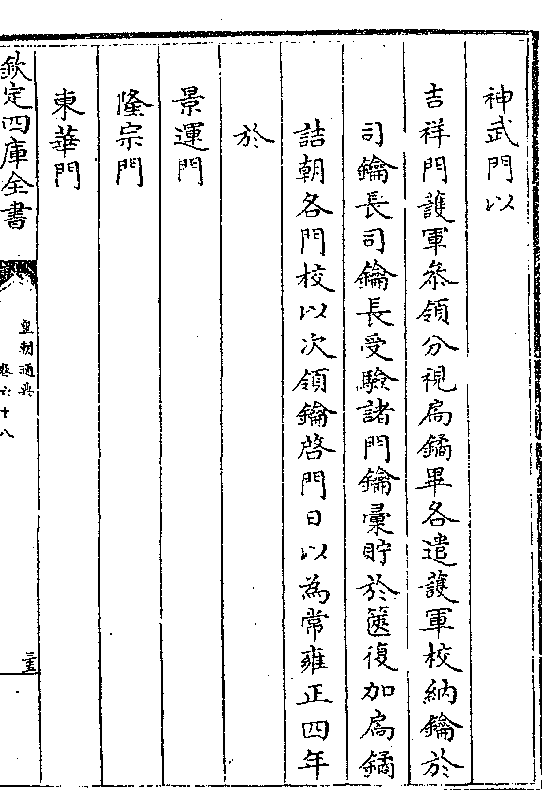 神武門以
吉祥門護軍叅領分視扃鐍畢各遣護軍校納鑰於
司鑰長司鑰長受驗諸門鑰彚貯於匧復加扃鐍
詰朝各門校以次領鑰啓門日以為常雍正四年
於
景運門
隆宗門
東華門
欽定四庫全書
皇朝通典
卷六十八